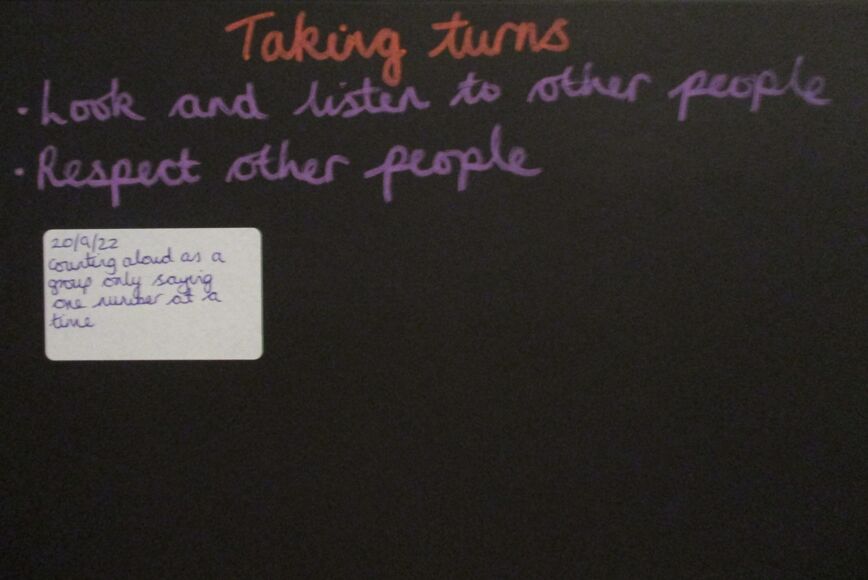 Taking turns
• Look and listen to other people
• Respect other people
20/9/22
counting aloud as a
group only saying
one number at a
time